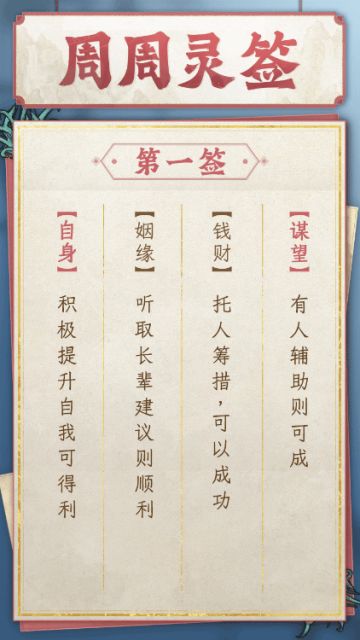 周周灵签
第一签
【谋望】
有人辅助则可成
【钱财】
托人筹措，可以成功
【姻缘】
听取长辈建议则顺利
【自身】
积极提升自我可得利